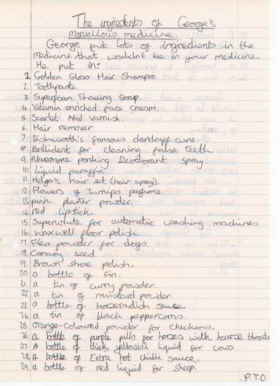 The ingredients of George's
Marvellous medicine.
George put lots of ingredients in the
medicine that wouldn't be in your medicine.
He put in:
1. Golden Gloss Hair Shampoo
2. Toothpaste
3. Superfoam Shaving Soap.
4. Vitamin enriched face cream.
5. Scarlet Nail Varnish
6. Hair remover
7. Dishworth's famous dandruff cure.
8. Brillident for cleaning false teeth.
9. Nevermore ponking Deodorant spray
10. Liquid paraffin
11. Helga's hair set (hair spray).
12. Flowers of Turnips perfume.
13. pink plaster powder.
14. Red lipstick.
15. Superwhite for automatic washing machines
16. Waxwell floor polish.
17. Flea powder for dogs.
18. Canary seed
19. Brown shoe polish.
20. a bottle of Gin.
21. a tin of curry powder.
22. a tin of mustard powder
23. a bottle of horseradish sauce.
24. a tin of black peppercorns.
25. Orange-coloured powder for chickens.
26. a bottle of purple pills for horses with hoarse throats
27. A bottle of thick yellowish liquid for cows
28. A bottle of Extra hot chilli sauce.
29. A bottle of red liquid for sheep.
P.T.O